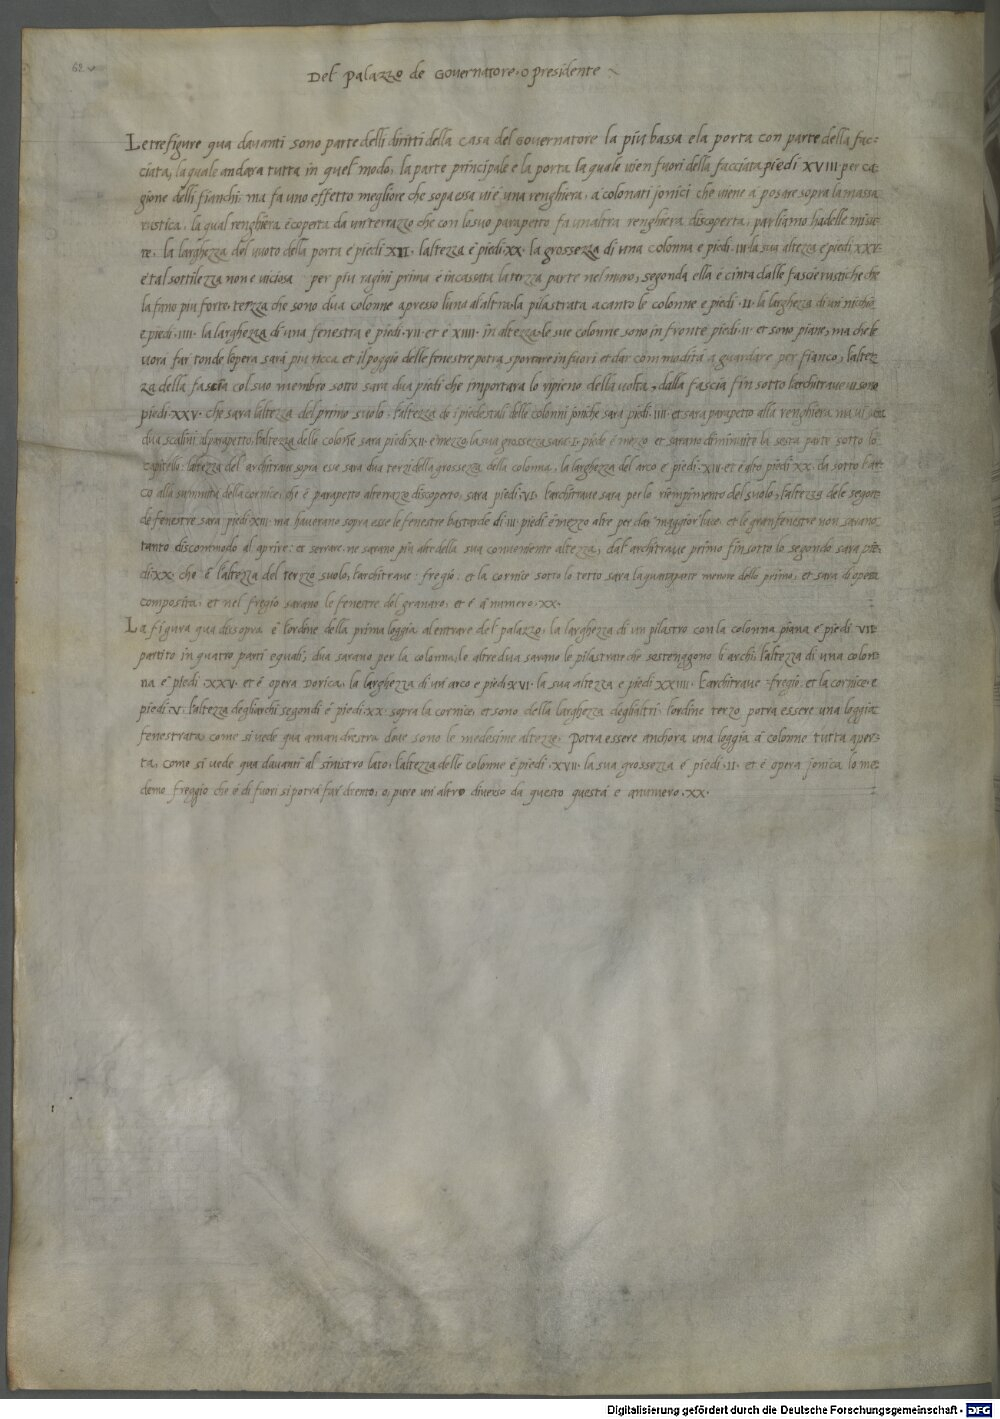 62 v
Del palazzo de Governatore, o presidente
Le tre figure qua davanti sono parte delli diritti della casa del Governatore la piu bassa e la porta con parte della fac=
ciata, la quale andara tutta in quel modo, la parte principale e la porta la quale vien fuori della facciata piedi XVIII per ca
gione delli fianchi: ma fa uno effetto megliore che sopa essa vi è una renghiera, a colonati jonici che viene a posare sopra la massa
rustica, la qual renghiera è coperta da un terrazzo che con lo suo parapetto fa unaltra renghiera discoperta, parliamo ha delle misu
re. la larghezza del vuoto della porta e piedi XII. laltezza è piedi XX. la grossezza di una colonna e piedi .III. la sua altezza e piedi XXV.
è tal sottilezza non e viciosa per piu ragini prima è incassata la terza parte nel muro, segonda ella è cinta dalle fascie rustiche che
la fano piu forte, terza che sono dua colonne apresso luna al altra. la pilastrata acanto le colonne e piedi .II. la larghezza di un nichio
e piedi .IIII. la larghezza di una fenestra e piedi .VII. et è XIIII in altezza. le sue colonne sono in fronte piedi .II. et sono piane, ma che le
vora far tonde lopera sarà piu ricca et il poggio delle fenestre potra sportare in fuori et dar commodità a guardare per fianco, laltez
za della fascia col suo membro sotto sara dua piedi che importara lo ripieno della volta, dalla fascia fin sotto larchitraue vi sono
piedi .XXV. che sara laltezza del primo suolo, laltezza de i piedestali delle colonni joniche sara piedi .IIII. et sara parapetto alla renghiera ma vi uan
dua scalini al parapetto, laltezza delle colone sara piedi XII. è mezzo, la sua grossezza sara .I. piede è mezo et sarano diminuite la sesta parte sotto lo
capitello: laltezza del architraue sopra esse sara dua terzi della grossezza della colonna, la larghezza del arco e piedi .XIII. et è alto piedi XX. da sotto lar
co alla summità della cornice, che è parapetto al terrazo discoperto, sara piedi .VI. larchitraue sara per lo riempimento del suolo, laltezza dele segon
de fenestre sara piedi XIII. ma haverano sopra esse le fenestre bastarde di .III. piedi è mezzo alte per dar maggior luce, et le gran fenestre non sarano
tanto discommodo al aprire: et serrare. ne sarano piu alte della sua conveniente altezza, dal architraue primo fin sotto lo segondo sara pie
di XX. che è laltezza del terzo suolo, larchitraue: fregio. et la cornice sotto lo tetto sara la quarta parte menore dello primo, et sara di opera
composita, et nel fregio sarano le fenestre del granaro, et è à numero .XX.
La figura qua dissopra è lordine della prima loggia al entrare del palazzo, la larghezza di un pilastro con la colonna piana e piedi .VII.
partito in quatro parti equali, dua sarano per la colonna, le altre dua sarano le pilastrate che sostenggono li archi, laltezza di una colon
na è piedi .XXV. et è opera Dorica, la larghezza di un arco e piedi XVI. la sua altezza e piedi XXIIII. larchitraue =fregio. et la cornice. e
piedi .V. laltezza degli archi segondi è piedi .XX. sopra la cornice, et sono della larghezza degli altri. lordine terzo potra essere una loggia
fenestrata, come si vede qua a man dextra doue sono le medesime altezze, Potra essere anchora una loggia à colonne tutta aper=
ta, come si vede qua davanti al sinistro lato, laltezza delle colonne è piedi .XVII. la sua grossezza è piedi .II. et è opera jonica lo me
demo freggio che è di fuori si potrà far drento, o, pure un altro diverso da questo questa e anumero .XX.
Digitalisierung gefördert durch die Deutsche Forschungsgemeinschaft - DFG